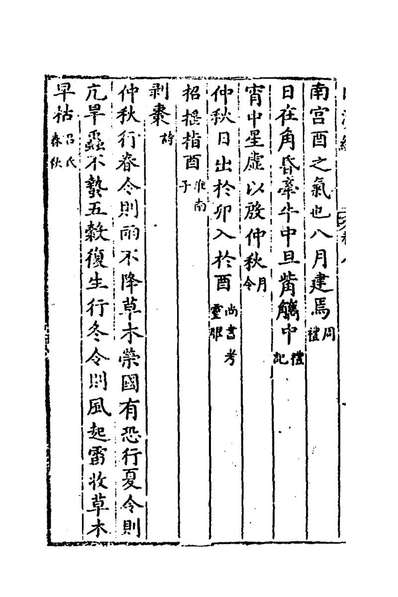 南宫酉之氣也八月建焉周禮
日在角昏牽牛中旦觜觿中禮記
宵中星虛以殷仲秋月令
仲秋日出於卯入於酉尚書考靈耀
招搖指酉淮南子
剥棗詩
仲秋行春令則雨不降草木榮國有恐行夏令則
亢旱蟲不蟄五穀復生行冬令則風起雷收草木
早枯吕氏春秋